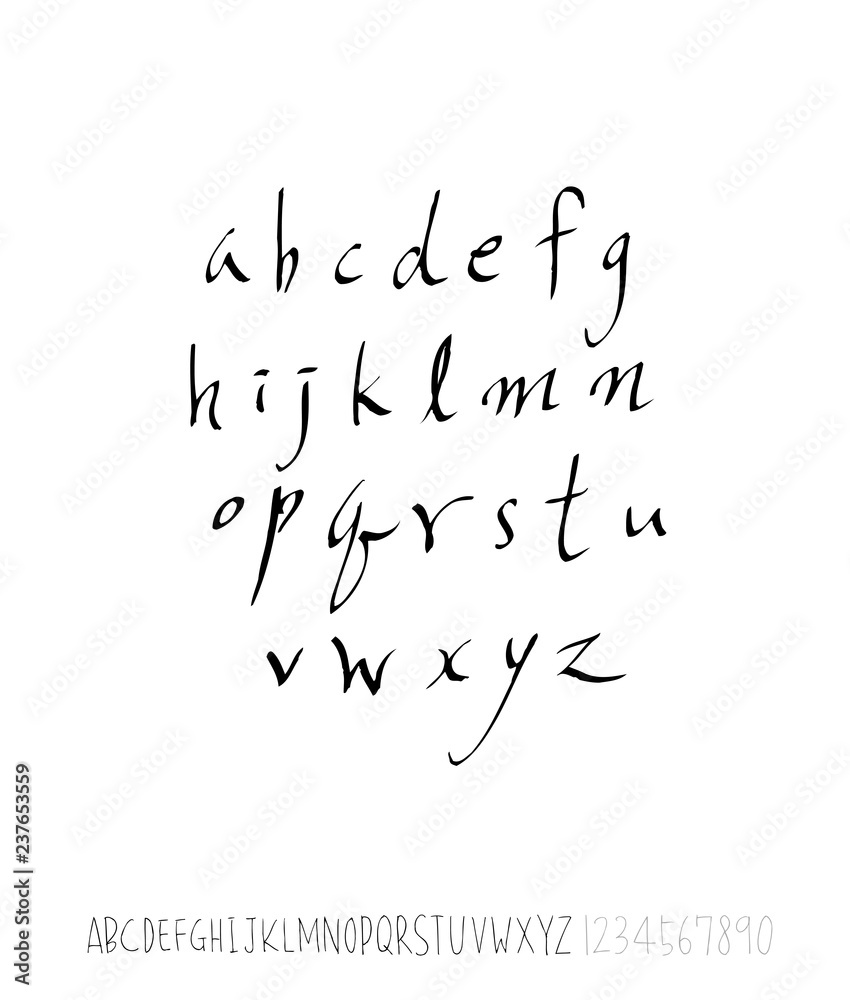 a b c d e f g
h i j k l m n
o p q r s t u
v w x y z
ABCDEFGHIJKLMNOPQRSTUVWXYZ 1234567890
Adobe Stock | #237653559